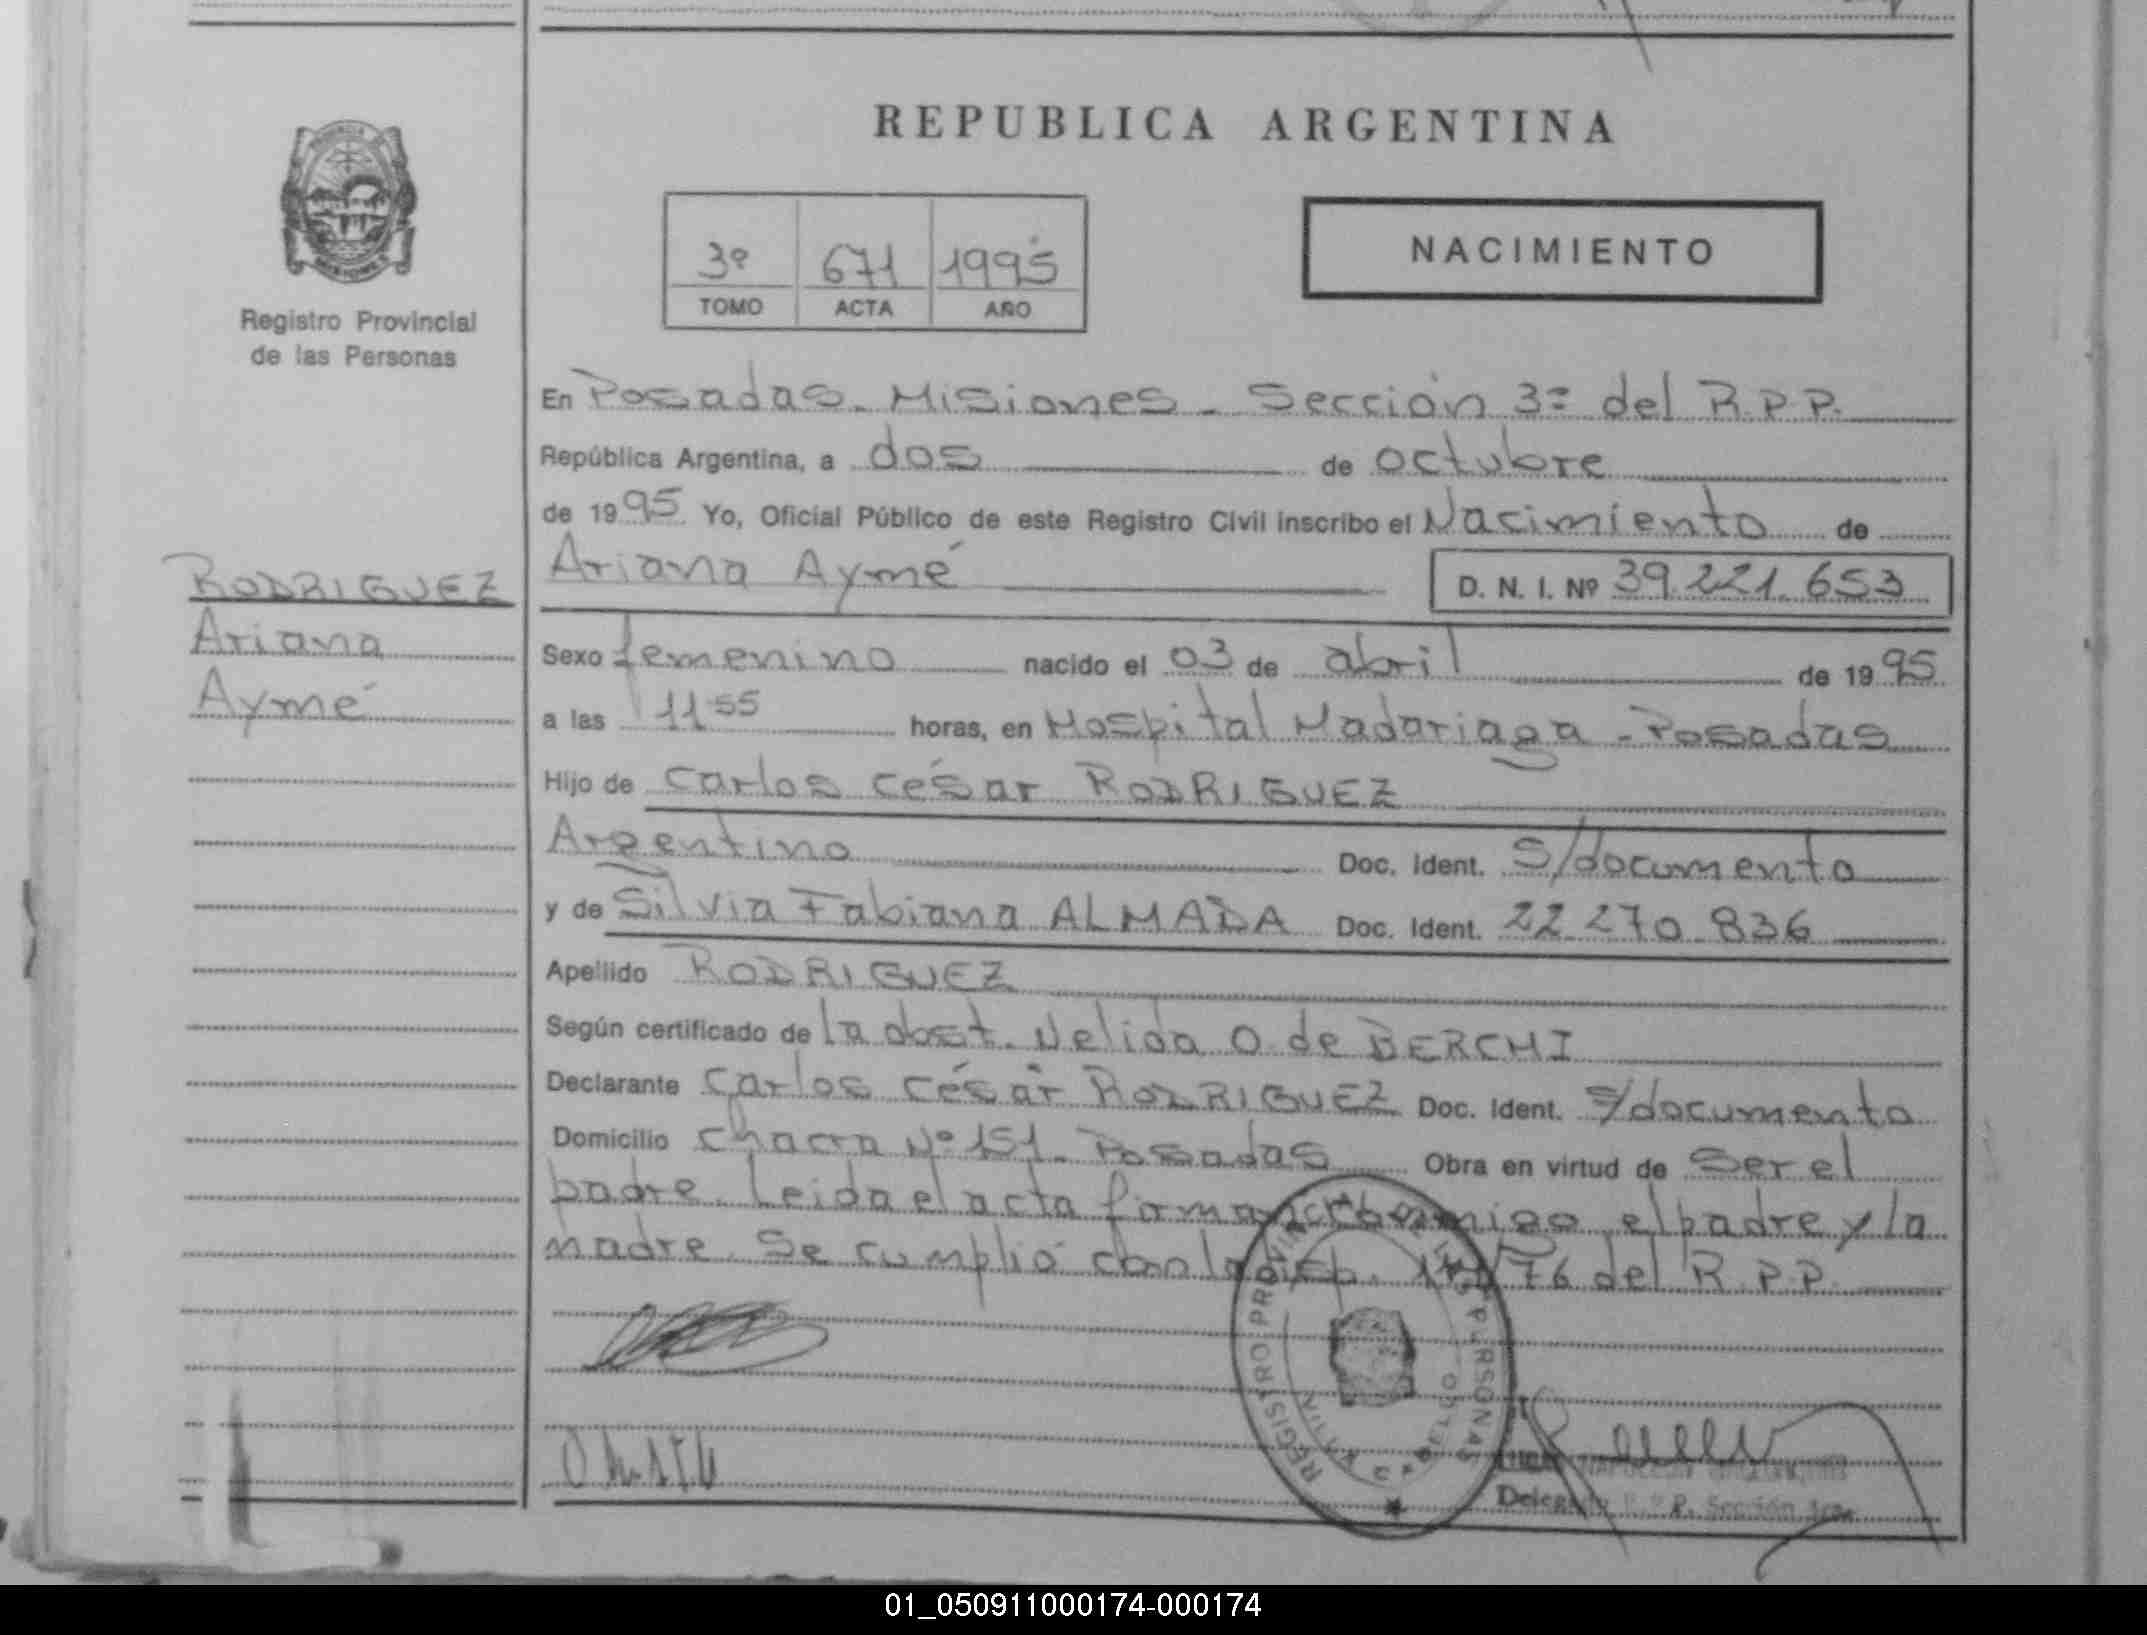 REPUBLICA ARGENTINA
3º 671 1995
TOMO ACTA AÑO
NACIMIENTO
MISIONES
Registro Provincial
de las Personas
RODRIGUEZ
Ariana
Aymé
En Posadas - Misiones - Sección 3ª del R.P.P.
República Argentina, a dos de octubre
de 1995 Yo, Oficial Público de este Registro Civil inscribo el Nacimiento de
Ariana Aymé D. N. I. Nº 39.221.653
Sexo femenino nacido el 03 de abril de 1995
a las 11 55 horas, en Hospital Madariaga - Posadas
Hijo de Carlos César RODRIGUEZ
Argentino Doc. Ident. S/documento
y de Silvia Fabiana ALMADA Doc. Ident. 22.270.836
Apellido RODRIGUEZ
Según certificado de la obst. Nelida O. de BERCHI
Declarante Carlos César RODRIGUEZ Doc. Ident. S/documento
Domicilio Chacra Nº 151 - Posadas Obra en virtud de Ser el
padre. Leida el acta firman conmigo el padre y la
madre. Se cumplió con la 76 del R.P.P.
REGISTRO PROVINCIAL DE LAS PERSONAS
Sección
01_050911000174-000174